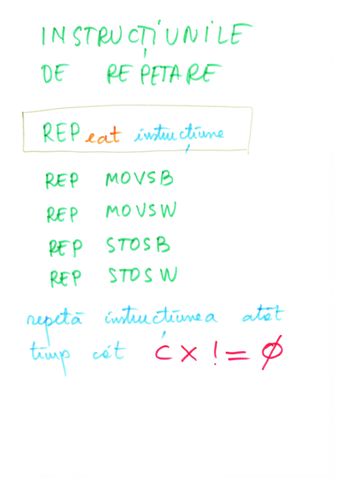 INSTRUCȚIUNILE
DE REPETARE
REPeat instrucțiune
REP MOVSB
REP MOVSW
REP STOSB
REP STOSW
repetă instrucțiunea atât
timp cât CX != Ø